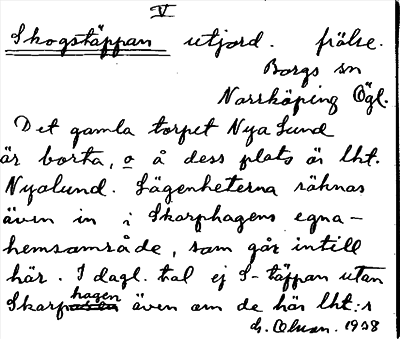 V
Skogstäppan utjord. frälse.
Borgs sn
Norrköping Ögl.
Det gamla torpet Nya Lund
är borta, o å dess plats är lht.
Nyalund. Lägenheterna räknas
även in i Skarphagens egna-
hemsområde, som går intill
här. I dagl. tal ej S-täppan utan
Skarphagen även om de här lht:r
1928